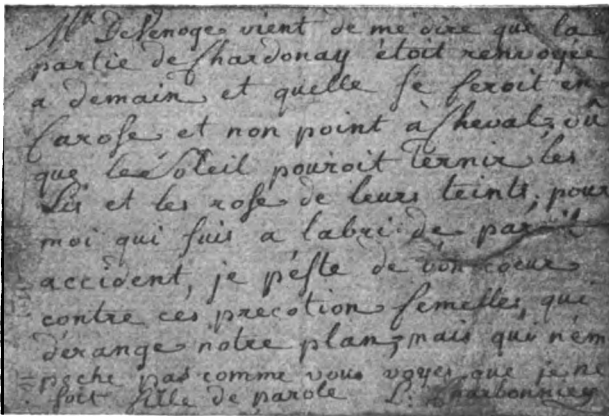 Mr DeVenoge vient de me dire que la
partie de Chardonay étoit renvoyée
a demain et quelle se feroit en
Carose et non point à Cheval, vû
que le Soleil pouroit ternir les
Lis et les rose de leurs teints, pour
moi qui suis a labri de pareil
accident, je peste de bon coeur
contre ces precotion femelles, que
dérange notre plan, mais qui nem
peche pas comme vous voyes que je ne
soit fille de parole L. Charbonniey